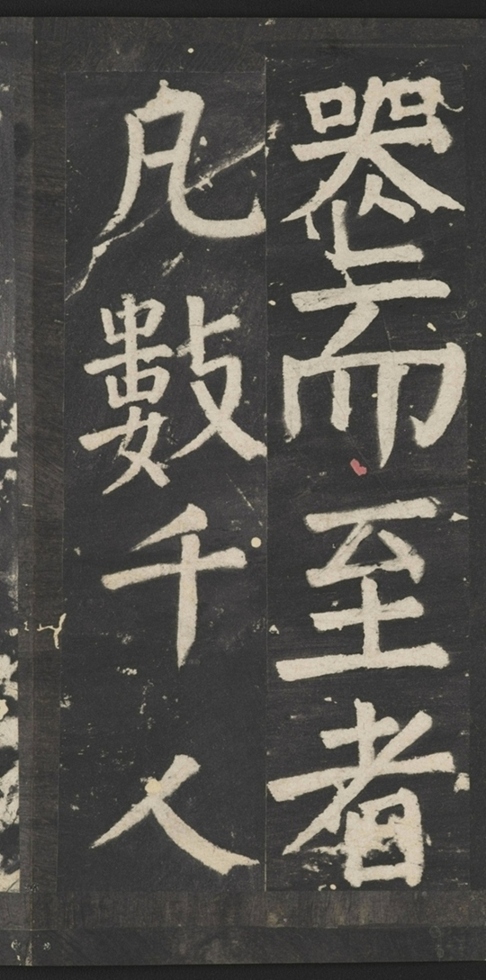 喪而至者
凡數千人